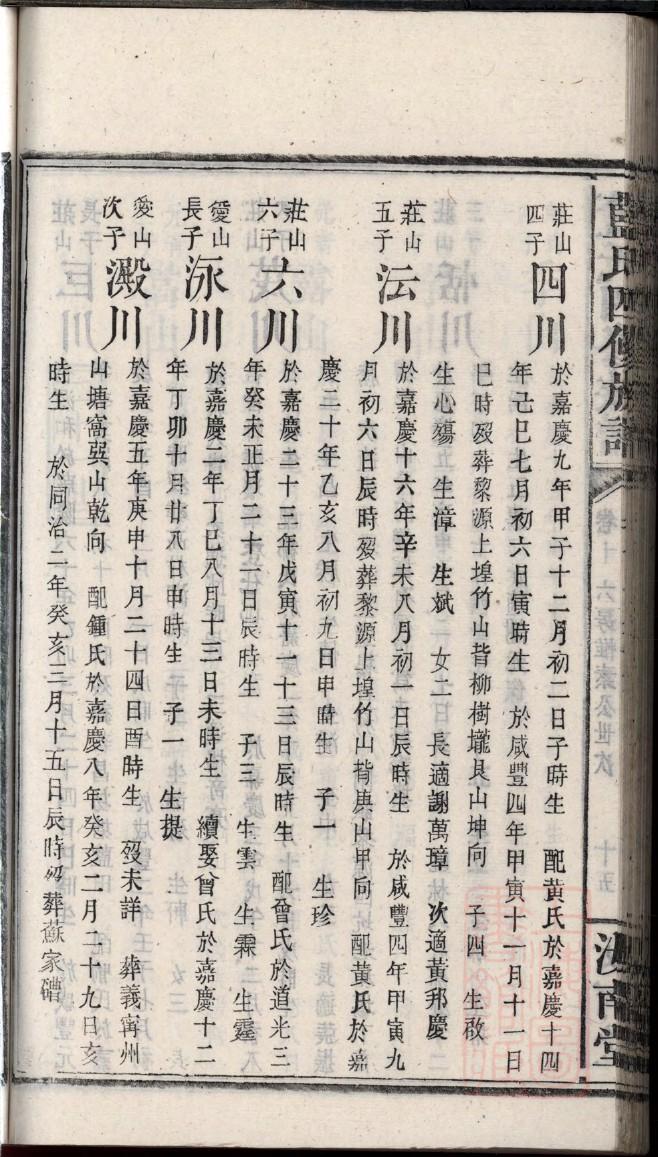 藍氏四修族譜
卷十六房權素公世次
十五
汝南堂
莊山四子
四川
於嘉慶九年甲子十二月初二日子時生 配黃氏於嘉慶十四
年己巳七月初六日寅時生 於咸豐四年甲寅十一月十一日
巳時歿葬黎源上堭竹山背柳樹壠艮山坤向 子四 生啟
生心殤 生漳 生斌 女二 長適謝萬璋 次適黃邦慶
莊山五子
沄川
於嘉慶十六年辛未八月初一日辰時生 於咸豐四年甲寅九
月初六日辰時歿葬黎源上堭竹山背庚山甲向 配黃氏於嘉
慶二十年乙亥八月初九日申時生 子一 生珍
莊山六子
六川
於嘉慶二十三年戊寅十一十三日辰時生 配曾氏於道光三
年癸未正月二十二日辰時生 子三 生雲 生霖 生霆
愛山長子
泳川
於嘉慶二年丁巳八月十三日未時生 續娶曾氏於嘉慶十二
年丁卯十月廿八日申時生 子一 生提
愛山次子
澱川
於嘉慶五年庚申十月二十四日酉時生 歿未詳 葬義寧州
山塘窩巽山乾向 配鍾氏於嘉慶八年癸亥二月二十九日亥
時生 於同治二年癸亥三月十五日辰時歿葬蘇家磄